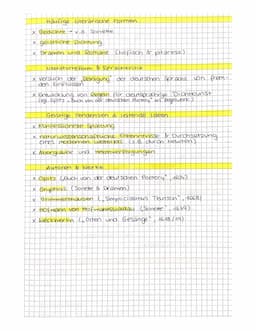 Häufige literarische Formen
x Gedichte → v.a. Sonette
x geistliche Dichtung
x Dramen und Romane (höfisch & pikaresk)
Literaturreform & Sprachkritik
x Versuch der "Reinigung" der deutschen Sprache von frem-
den Einflüssen
x Entwicklung von Regeln für deutschsprachige Dichtkunst
(vgl. Opitz → "Buch von der deutschen Poeterey" als "Regelwerk")
Geistige Tendenzen & leitende Ideen
x Konfessionelle Spaltung
x naturwissenschaftliche Erkenntnisse & Durchsetzung
eines modernen Weltbilds (z.B. durch Newton)
x Aberglaube und Hexenverfolgungen
Autoren & Werke
x Opitz ("Buch von der deutschen Poeterey", 1624)
x Gryphius (Sonette & Dramen)
x Grimmelshausen ("Simplicissimus Teutsch", 1668)
x Hofmann von Hofmannswaldau (Sonette, 1679)
x Weckherlin ("Oden und Gesänge", 1618/19)